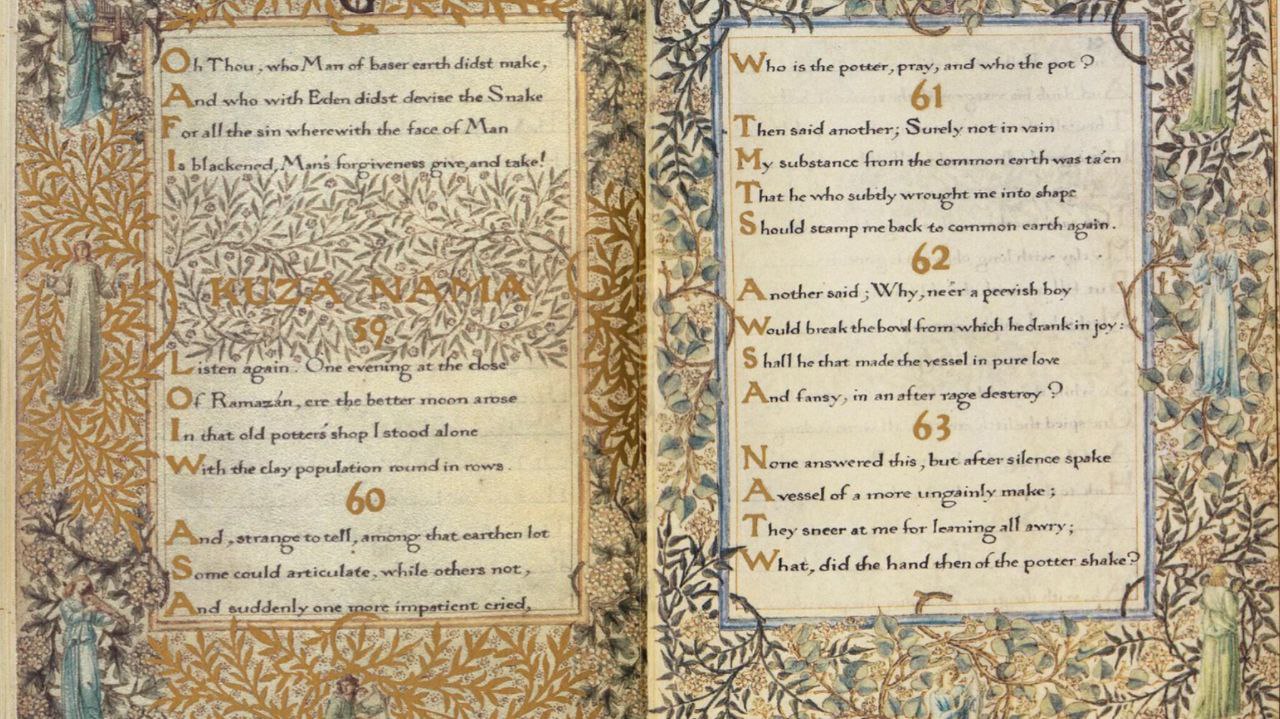 Oh Thou, who Man of baser earth didst make,
And who with Eden didst devise the Snake
For all the sin wherewith the face of Man
Is blackened, Man's forgiveness give, and take!
KUZA NAMA
59
Listen again. One evening at the close
Of Ramazán, ere the better moon arose
In that old potter's shop I stood alone
With the clay population round in rows.
60
And, strange to tell, among that earthen lot
Some could articulate, while others not,
And suddenly one more impatient cried,
Who is the potter, pray, and who the pot?
61
Then said another; Surely not in vain
My substance from the common earth was ta'en
That he who subtly wrought me into shape
Should stamp me back to common earth again.
62
Another said; Why, ne'er a peevish boy
Would break the bowl from which he drank in joy:
Shall he that made the vessel in pure love
And fansy, in an after rage destroy?
63
None answered this, but after silence spake
A vessel of a more ungainly make;
They sneer at me for leaning all awry;
What, did the hand then of the potter shake?